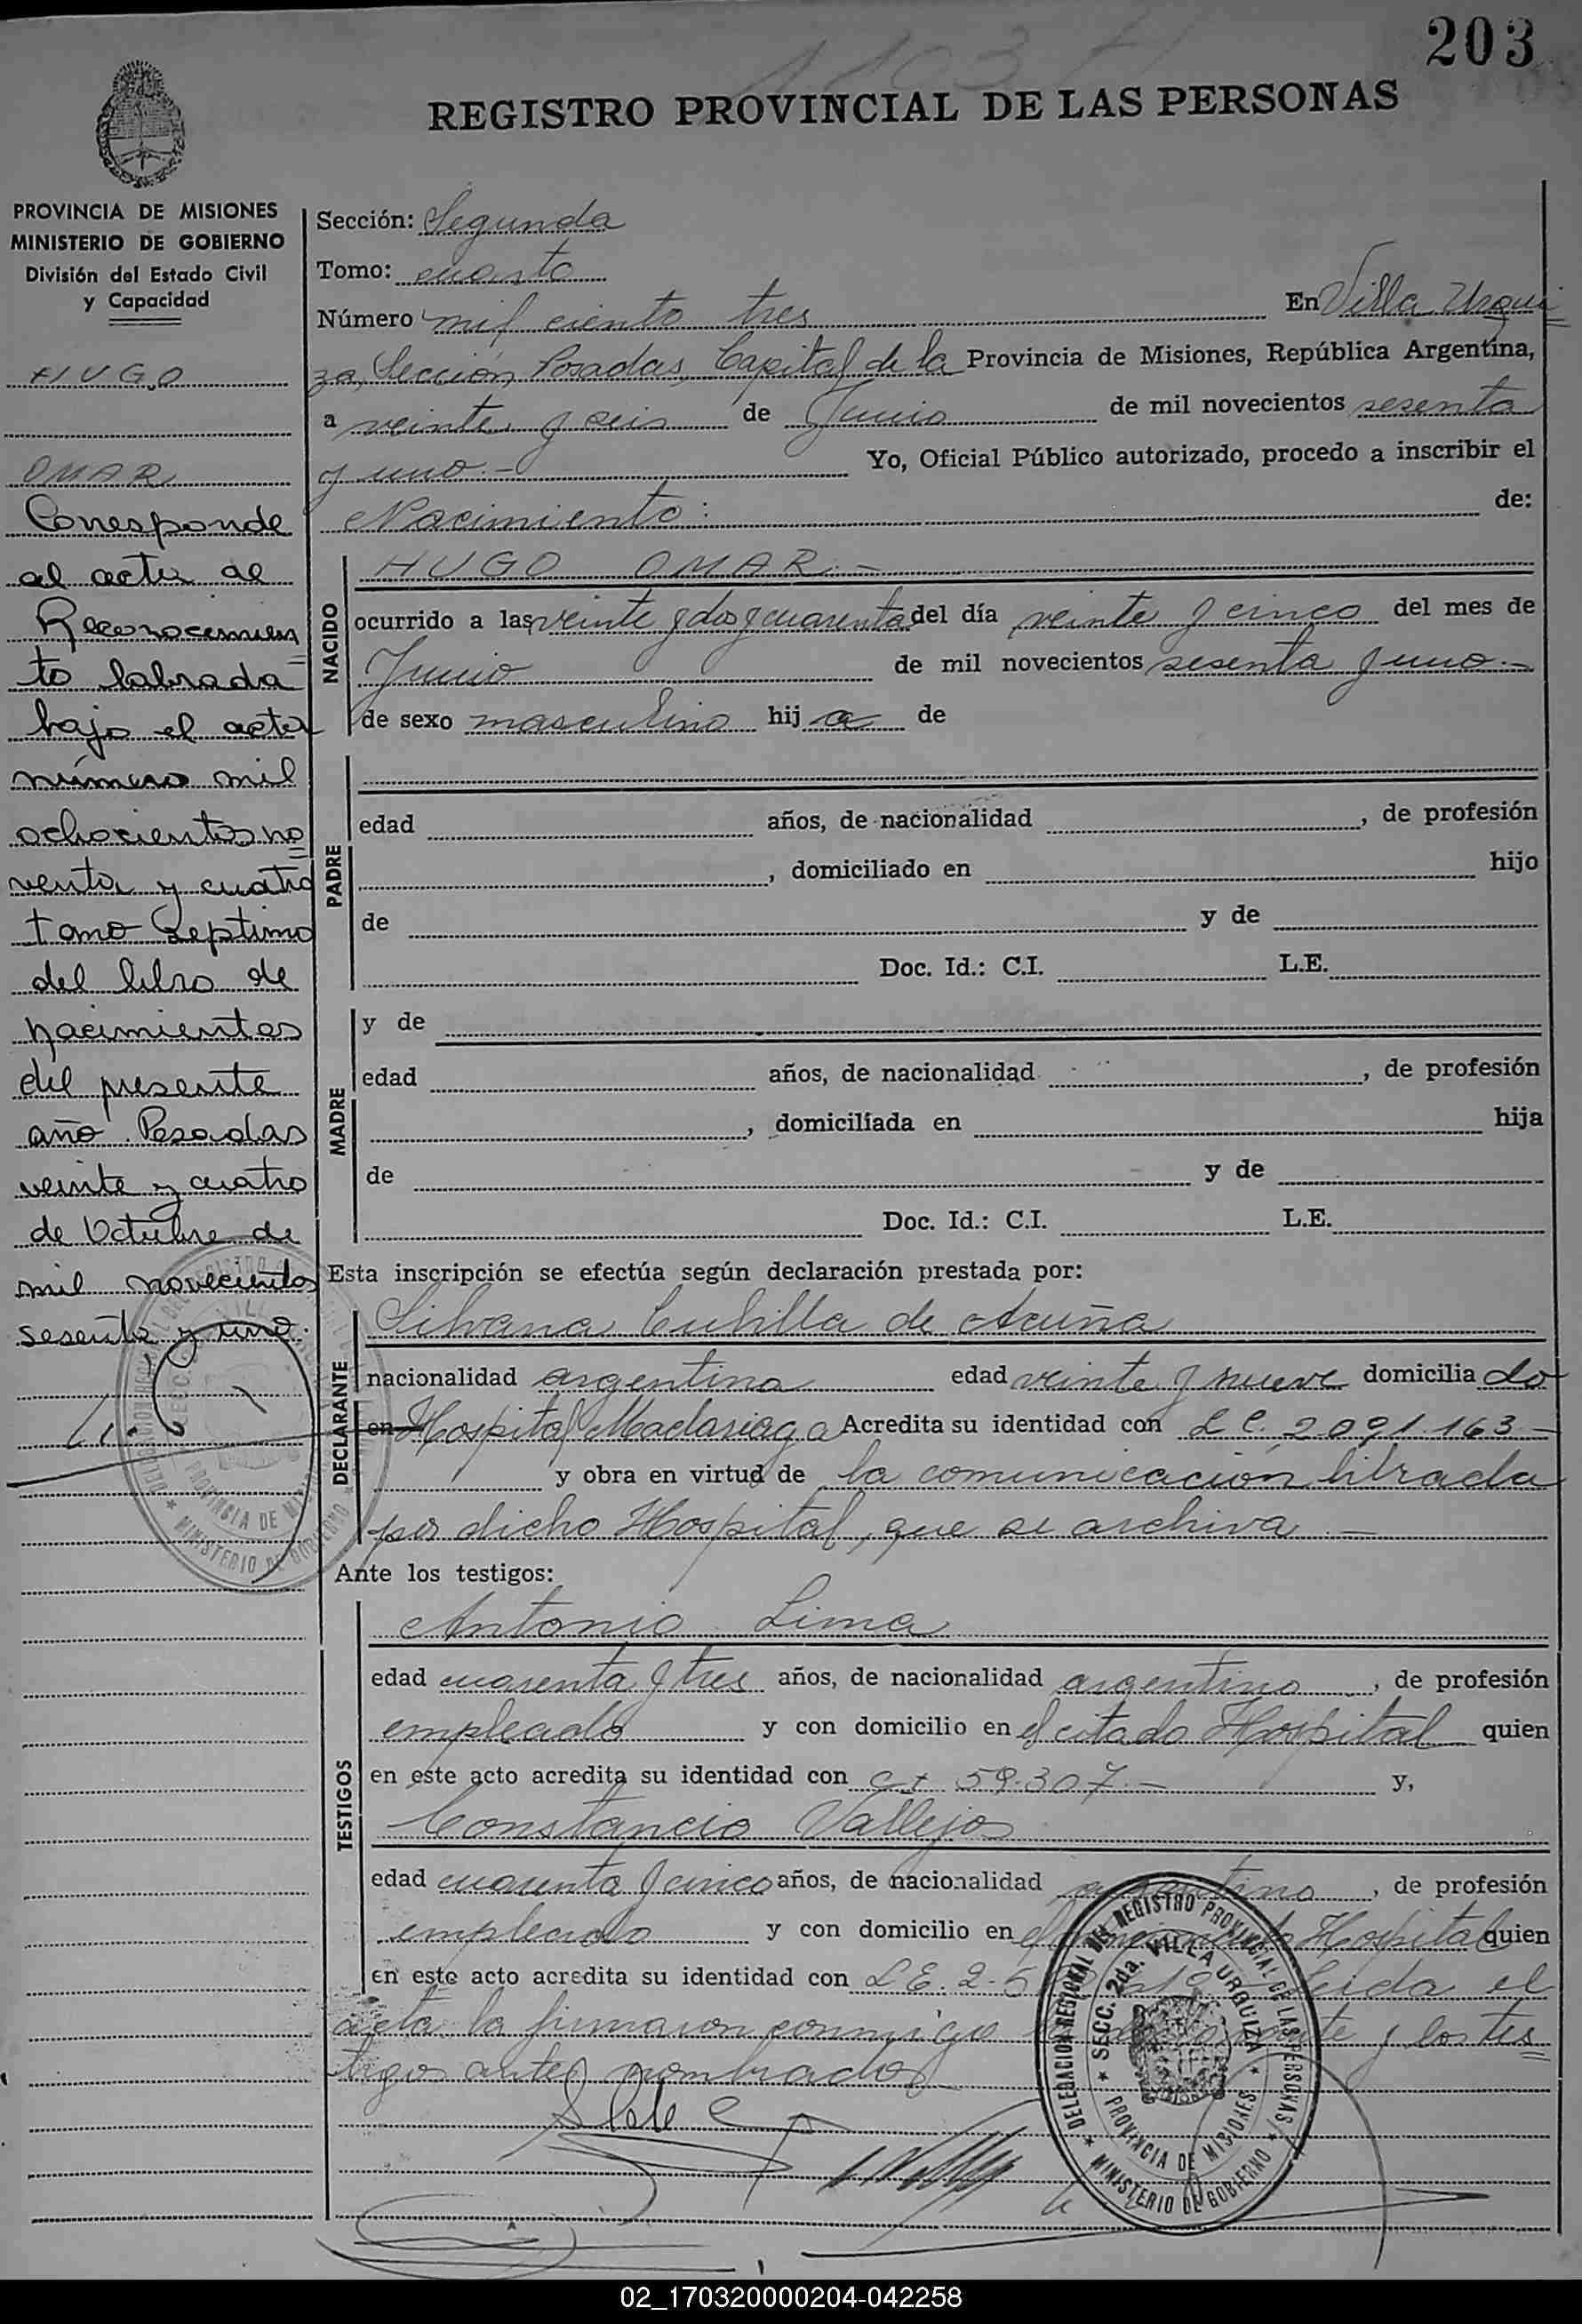 203
REGISTRO PROVINCIAL DE LAS PERSONAS
PROVINCIA DE MISIONES
MINISTERIO DE GOBIERNO
División del Estado Civil
y Capacidad
HUGO
OMAR
Corresponde
al acta de
Reconocimien
to labrada
bajo el acta
número mil
ochocientos no
venta y cuatro
tomo septimo
del libro de
nacimientos
del presente
año. Posadas
veinte y cuatro
de Octubre de
mil novecientos
sesenta y uno.
Sección: Segunda
Tomo: cuarto
Número mil ciento tres En Villa Urqui
za, Sección Posadas, Capital de la Provincia de Misiones, República Argentina,
a veinte y seis de Junio de mil novecientos sesenta
y uno.- Yo, Oficial Público autorizado, procedo a inscribir el
Nacimiento: de:
NACIDO
HUGO OMAR.-
ocurrido a las veinte y dos y cuarenta del día veinte y cinco del mes de
Junio de mil novecientos sesenta y uno.-
de sexo masculino hij a de
PADRE
edad años, de nacionalidad , de profesión
, domiciliado en hijo
de y de
Doc. Id.: C.I. L.E.
MADRE
y de
edad años, de nacionalidad , de profesión
, domiciliada en hija
de y de
Doc. Id.: C.I. L.E.
Esta inscripción se efectúa según declaración prestada por:
DECLARANTE
Silvana Cubilla de Acuña
nacionalidad argentina edad veinte y nueve domicilia do
en Hospital Madariaga Acredita su identidad con L C. 2.091.163.-
y obra en virtud de la comunicacion librada
por dicho Hospital, que se archiva.-
Ante los testigos:
TESTIGOS
Antonio Lima
edad cuarenta y tres años, de nacionalidad argentino, de profesión
empleado y con domicilio en el citado Hospital quien
en este acto acredita su identidad con 59.307.- y,
Constancio Vallejos
edad cuarenta y cinco años, de nacionalidad argentino, de profesión
empleado y con domicilio en el Hospital quien
en este acto acredita su identidad con L.E. 2.5 Leida el
acta la firmaron conmigo y los tes
tigos antes nombrados
DELEGACION REGIONAL DEL REGISTRO PROVINCIAL DE LAS PERSONAS
SECC. 2da. VILLA URQUIZA
PROVINCIA DE MISIONES
MINISTERIO DE GOBIERNO
02_170320000204-042258